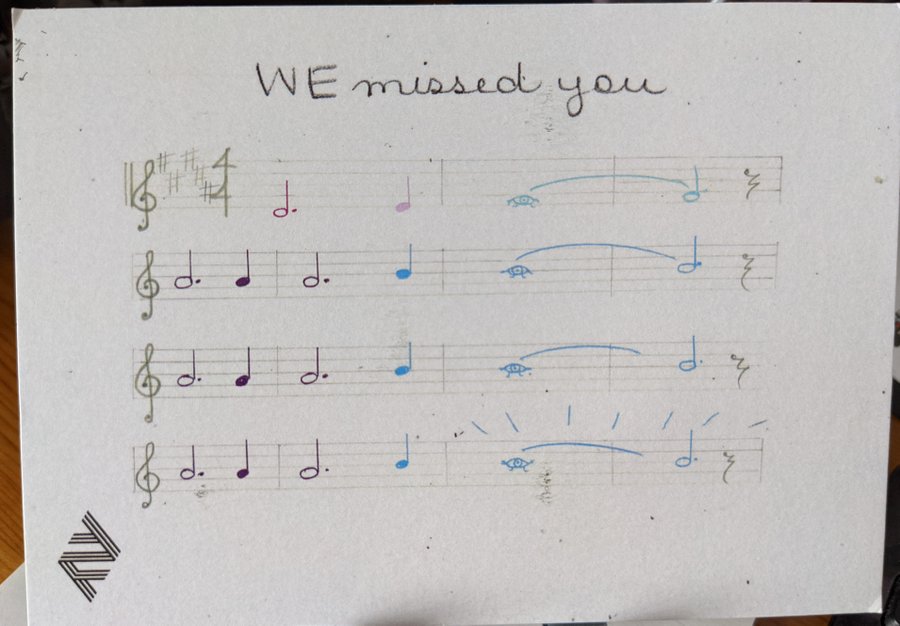 WE missed you
4
4